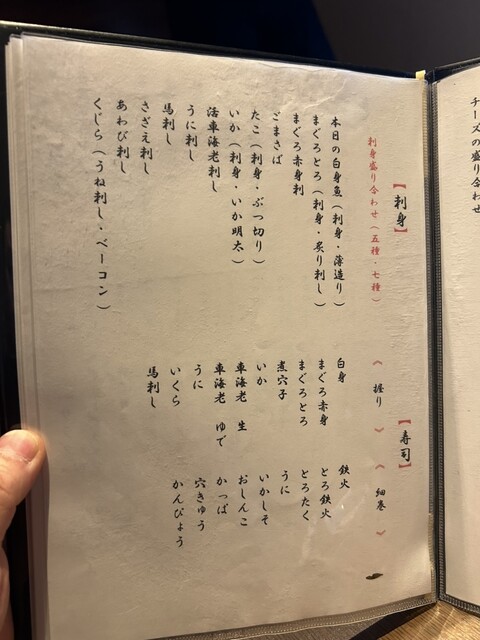 チーズの盛り合わせ
【刺身】
刺身盛り合わせ（五種・七種）
本日の白身魚（刺身・薄造り）
まぐろとろ（刺身・炙り刺し）
まぐろ赤身刺
ごまさば
たこ（刺身・ぶつ切り）
いか（刺身・いか明太）
活車海老刺し
うに刺し
馬刺し
さざえ刺し
あわび刺し
くじら（うね刺し・ベーコン）
【寿司】
《握り》
白身
まぐろ赤身
まぐろとろ
煮穴子
いか
車海老 生
車海老 ゆで
うに
いくら
馬刺し
《細巻》
鉄火
とろ鉄火
とろたく
うに
いかしそ
おしんこ
かっぱ
穴きゅう
かんぴょう